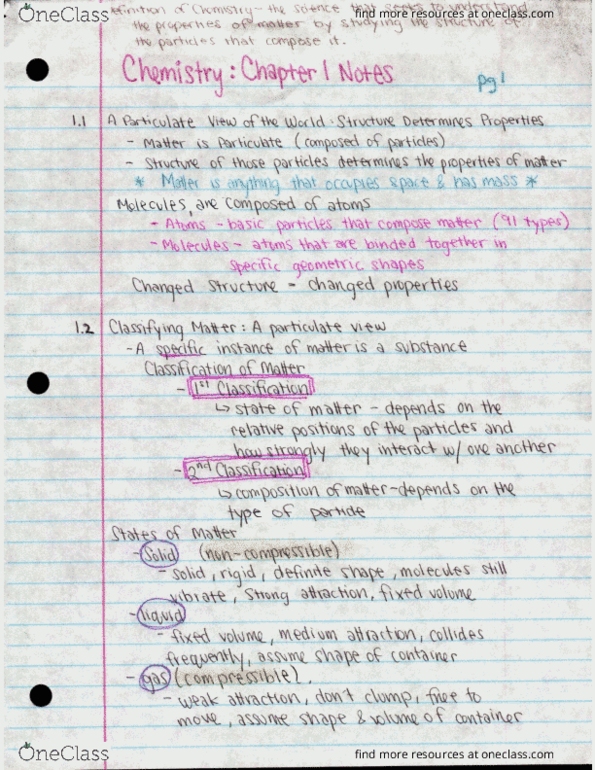 OneClass
find more resources at oneclass.com
Definition of Chemistry - the science that seeks to understand
the properties of matter by studying the structure of
the particles that compose it.
Chemistry: Chapter 1 Notes
pg 1
1.1 A Particulate View of the World: Structure Determines Properties
- Matter is Particulate (composed of particles)
- Structure of those particles determines the properties of matter
* Matter is anything that occupies space & has mass *
Molecules, are composed of atoms
- Atoms - basic particles that compose matter (91 types)
- Molecules - atoms that are binded together in
specific geometric shapes
Changed Structure - changed properties
1.2 Classifying Matter: A particulate view
- A specific instance of matter is a substance
Classification of Matter
- 1st Classification
↳ state of matter - depends on the
relative positions of the particles and
how strongly they interact w/ one another
- 2nd Classification
↳ composition of matter - depends on the
type of particle
States of Matter
- Solid (non-compressible)
- solid, rigid, definite shape, molecules still
vibrate, strong attraction, fixed volume
- liquid
- fixed volume, medium attraction, collides
frequently, assume shape of container
- gas (compressible).
- weak attraction, don't clump, free to
move, assume shape & volume of container
OneClass
find more resources at oneclass.com